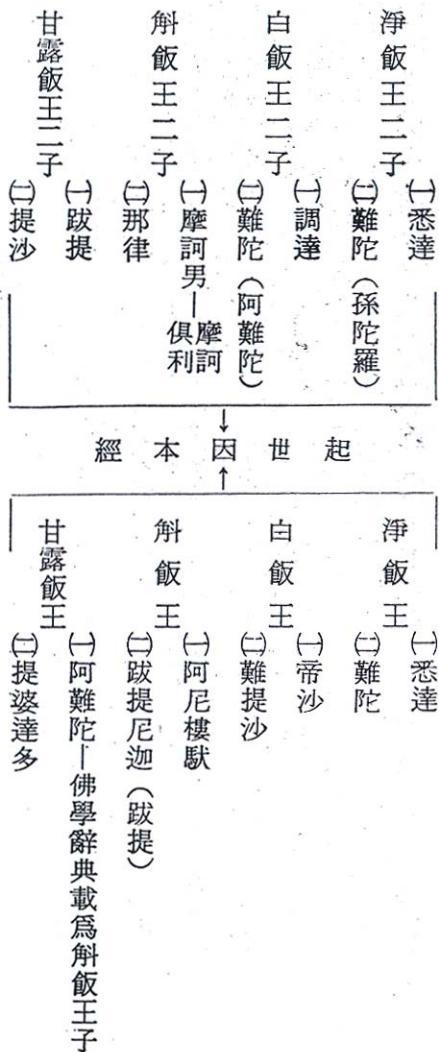 淨飯王二子
㈠悉達
㈡難陀（孫陀羅）
白飯王二子
㈠調達
㈡難陀（阿難陀）
斛飯王二子
㈠摩訶男—摩訶俱利
㈡那律
甘露飯王二子
㈠跋提
㈡提沙
起世因本經
淨飯王
㈠悉達
㈡難陀
白飯王
㈠帝沙
㈡難提沙
斛飯王
㈠阿尼樓馱
㈡跋提尼迦（跋提）
甘露飯王
㈠阿難陀—佛學辭典載爲斛飯王子
㈡提婆達多